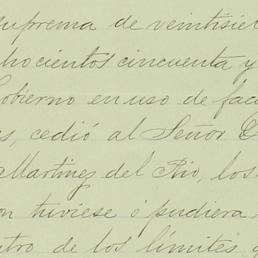 suprema de veintisie
hocientos cincuenta y
Gobierno en uso de fac
s, cedió al Señor D
Martinez del Rio, los
on tuviese ó pudiera
tro de los límites